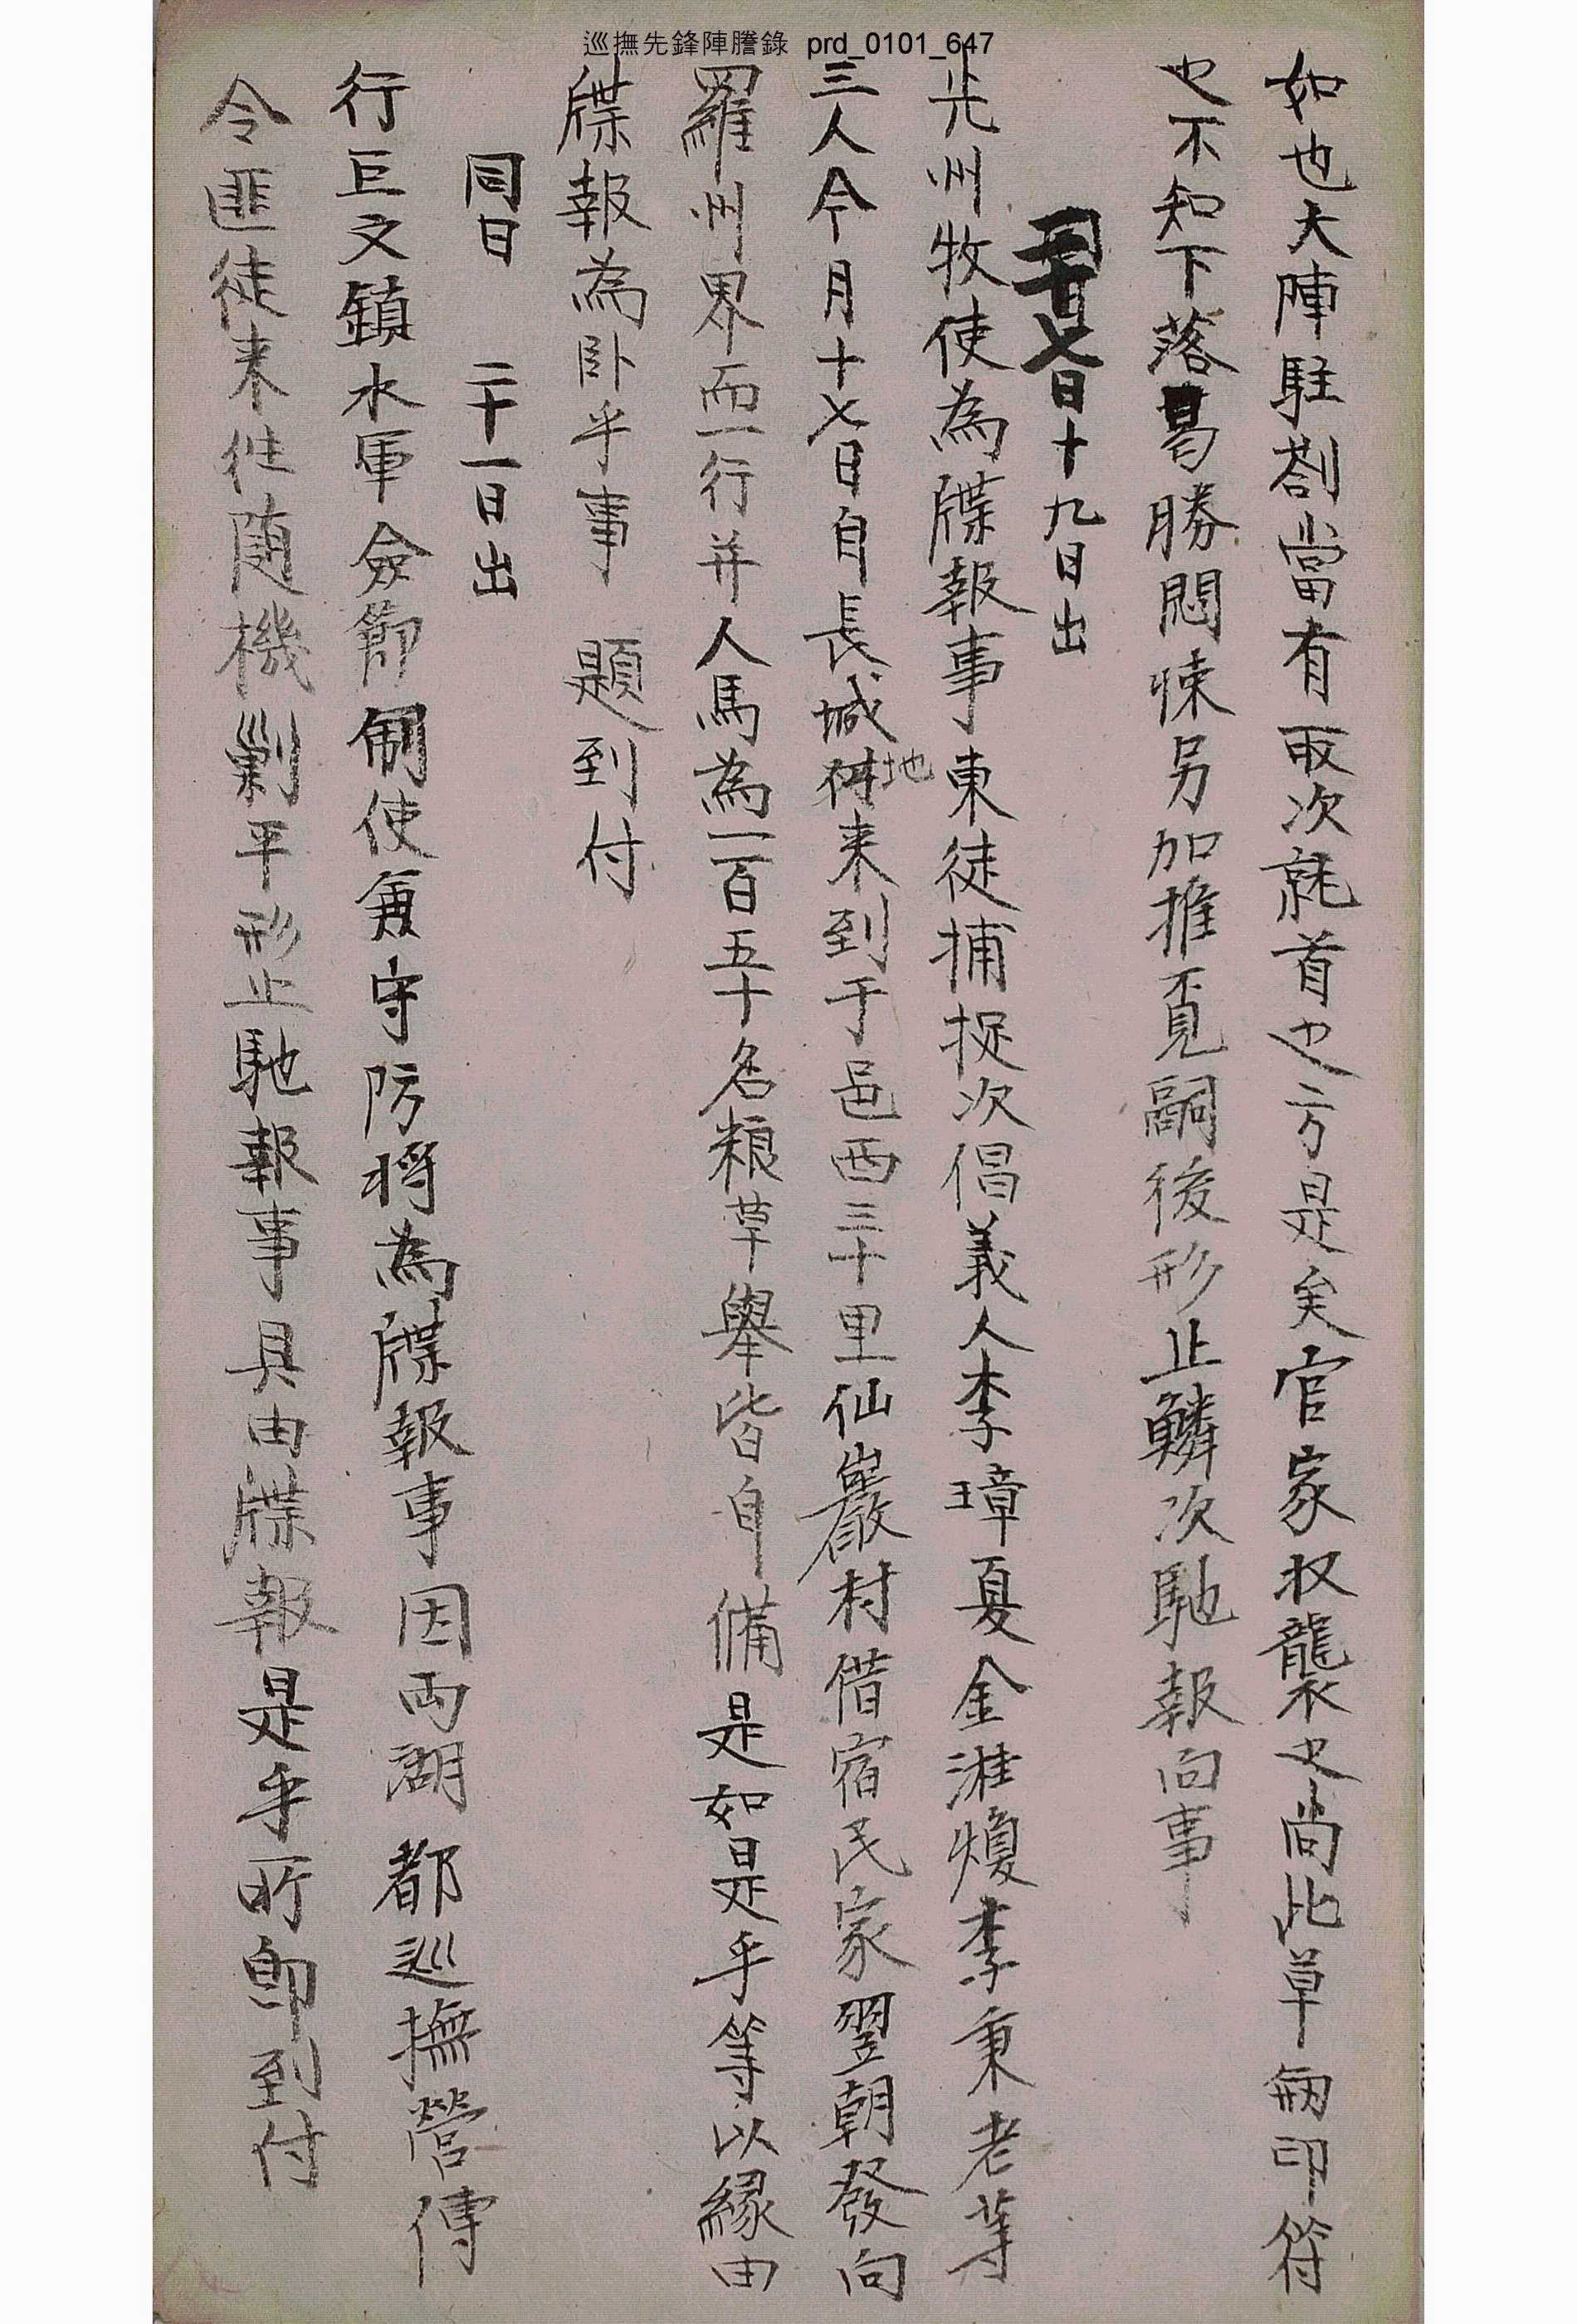 巡撫先鋒陣謄錄 prd_0101_647
如也大陣駐劄當有取次就首也方是矣官家収襲也尚此草刱印符
也不知下落曷勝悶悚另加推覓嗣後形止鱗次馳報向事
同日十九日出
光州牧使為牒報事東徒捕捉次倡義人李璋夏金淮煥李秉老等
三人今月十七日自長城地来到于邑西三十里仙巖村借宿民家翌朝發向
羅州界而一行并人馬為一百五十名粮草舉皆自備是如是乎等以緣由
牒報為卧乎事 題到付
同日 二十一日出
行巨文鎮水軍僉節制使兼守防將為牒報事因両湖都巡撫營傳
令匪徒来往随機剿平形止馳報事具由牒報是乎所即到付